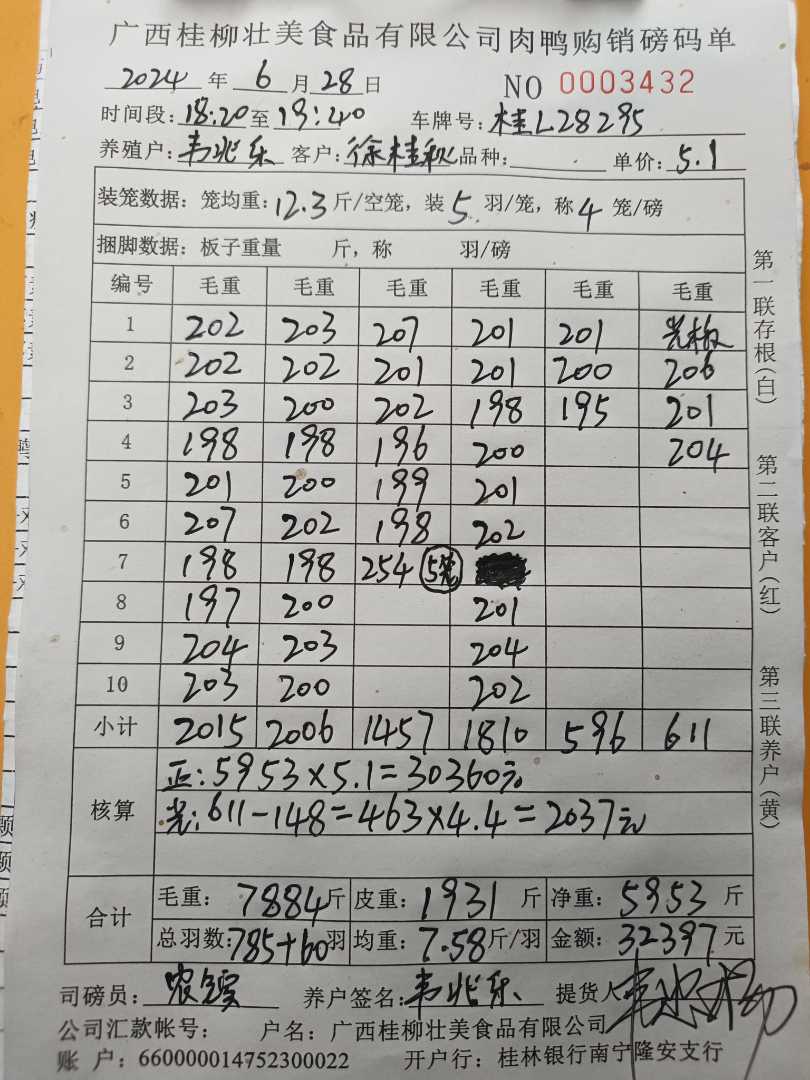 广西桂柳壮美食品有限公司肉鸭购销磅码单
2024 年 6 月 28 日 NO 0003432
时间段: 18:20 至 19:40 车牌号: 桂L28295
养殖户: 韦兆乐 客户: 徐桂秋 品种: 单价: 5.1
装笼数据: 笼均重: 12.3 斤/空笼, 装 5 羽/笼, 称 4 笼/磅
捆脚数据: 板子重量 斤, 称 羽/磅
编号 毛重 毛重 毛重 毛重 毛重 毛重
1 202 203 207 201 201 光板
2 202 202 201 201 200 206
3 203 200 202 198 195 201
4 198 198 196 200 204
5 201 200 199 201
6 207 202 198 202
7 198 198 254 5笼
8 197 200 201
9 204 203 204
10 203 200 202
小计 2015 2006 1457 1810 596 611
核算
正: 5953×5.1=30360元
光: 611-148=463×4.4=2037元
合计
毛重: 7884 斤 皮重: 1931 斤 净重: 5953 斤
总羽数: 785+60 羽 均重: 7.58 斤/羽 金额: 32397 元
司磅员: 养户签名: 韦兆乐 提货人
公司汇款帐号: 户名: 广西桂柳壮美食品有限公司
账 户: 660000014752300022 开户行: 桂林银行南宁隆安支行
第一联存根(白) 第二联客户(红) 第三联养户(黄)